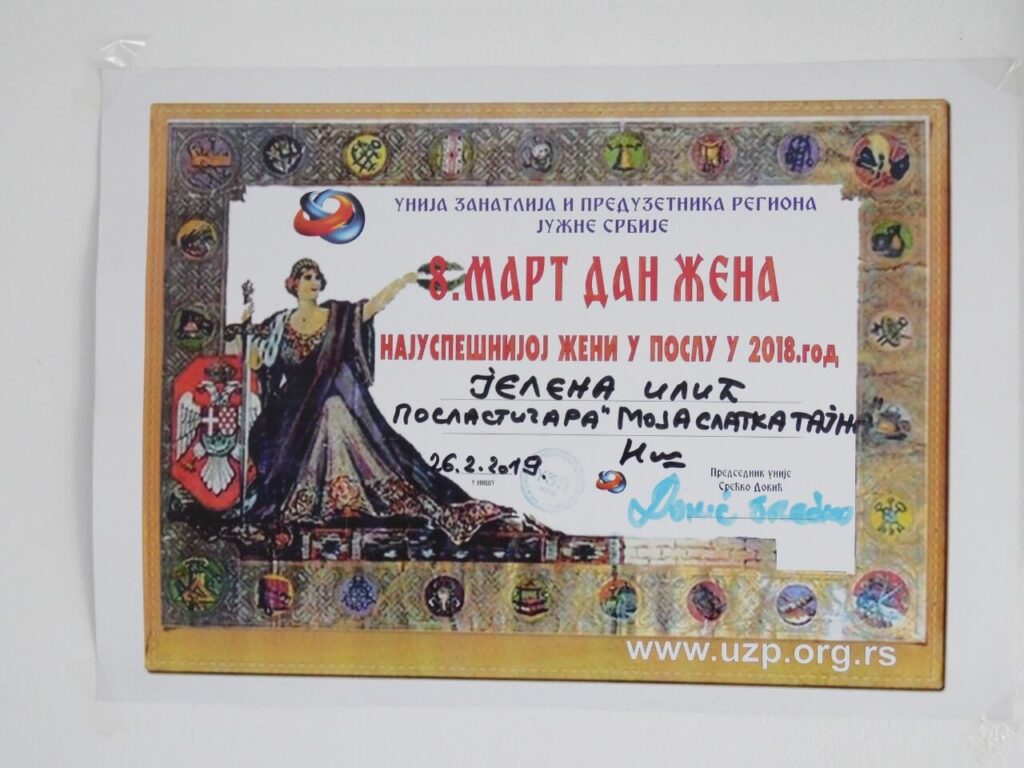 УНИЈА ЗАНАТЛИЈА И ПРЕДУЗЕТНИКА РЕГИОНА
ЈУЖНЕ СРБИЈЕ
8.МАРТ ДАН ЖЕНА
НАЈУСПЕШНИЈОЈ ЖЕНИ У ПОСЛУ У 2018.год
ЈЕЛЕНА ИЛИЋ
ПОСЛАСТИЧАРА "МОЈА СЛАТКА ТАЈНА"
Ниш
26.2.2019.
У НИШУ
Председник уније
Срећко Докић
www.uzp.org.rs